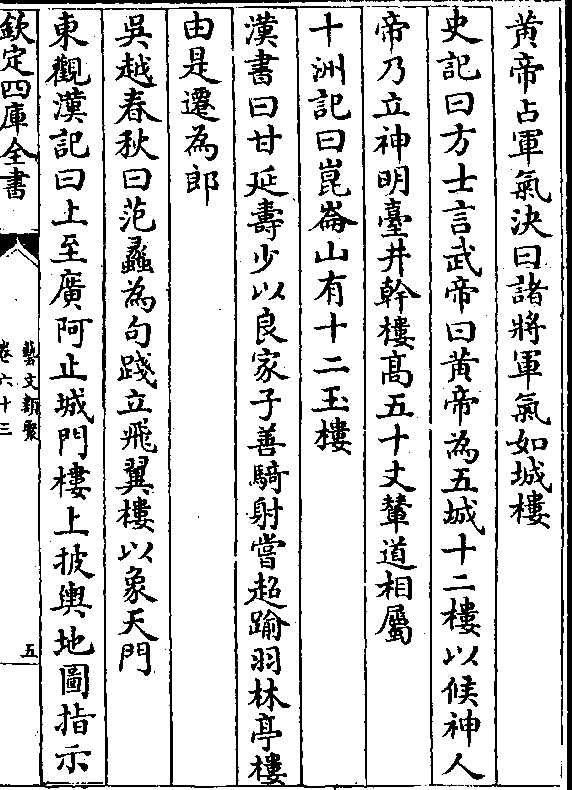 黄帝占軍氣決曰諸將軍氣如城樓
史記曰方士言武帝曰黄帝為五城十二樓以候神人
帝乃立神明臺井幹樓髙五十丈輦道相屬
十洲記曰崑崙山有十二玉樓
漢書曰甘延壽少以良家子善騎射嘗超踰羽林亭樓
由是遷為郎
吳越春秋曰范蠡為句踐立飛翼樓以象天門
東觀漢記曰上至廣阿止城門樓上披輿地圖指示
欽定四庫全書
藝文類聚
卷六十三
五